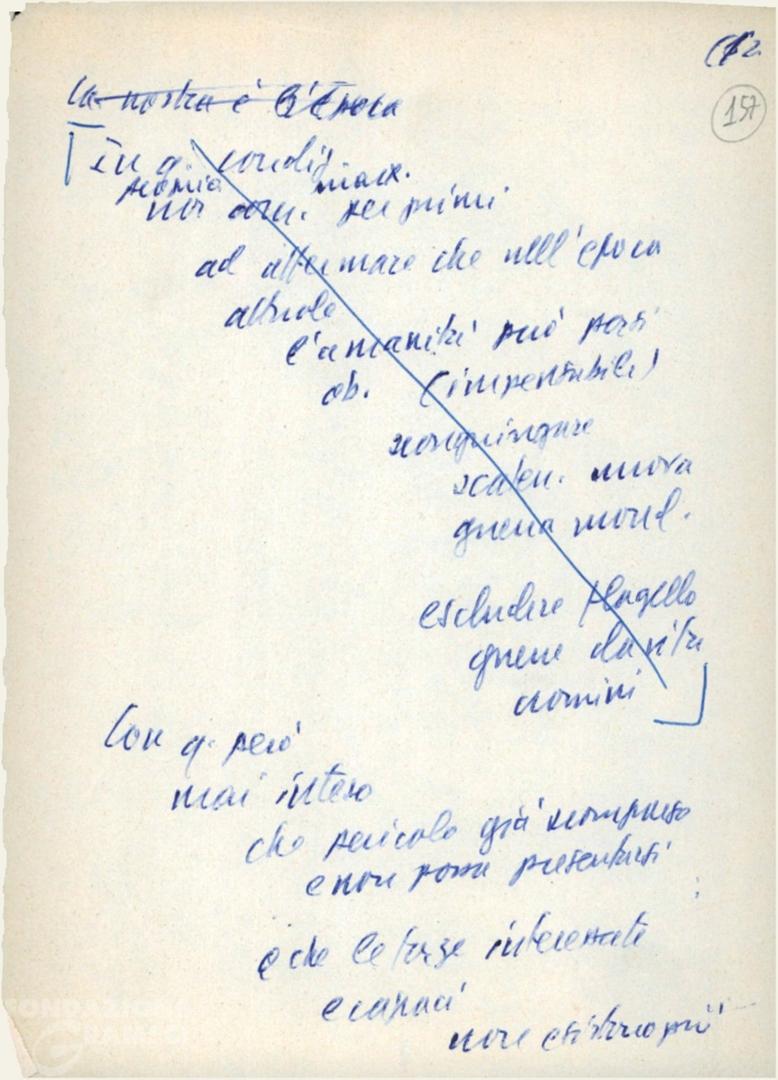 (12
157
la nostra è l'Epoca
In q. condiz.
noi com. per primi
ad affermare che nell'epoca
attuale
l'umanità può porsi
ob. (impensabile)
scongiurare
scaten. nuova
guerra mond.
escludere flagello
guerre da vita
uomini
Con q. però
mai inteso
che pericolo già scomparso
e non possa presentarsi
e che le forze interessate
e capaci
non esistano più
FONDAZIONE
GRAMSCI